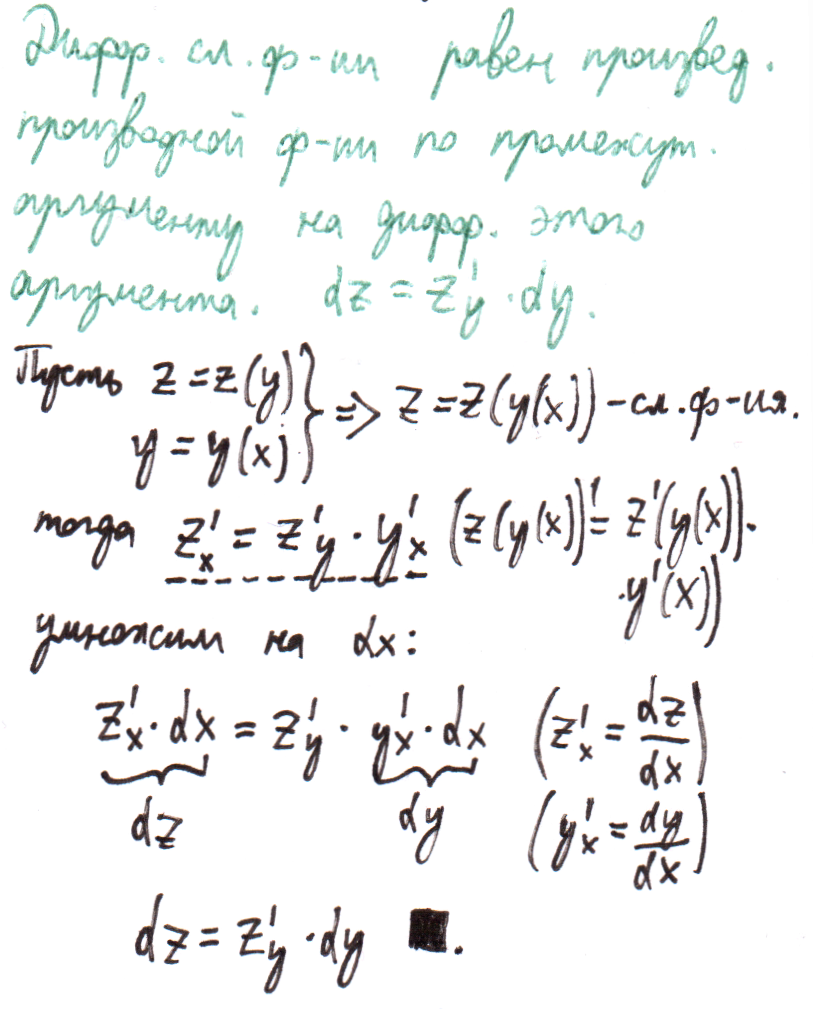 Диффер. сл. ф-ии равен произвед.
производной ф-ии по промежут.
аргументу на диффер. этого
аргумента. dz = z'y · dy.
Пусть z = z(y)
y = y(x) } => z = z(y(x)) - сл. ф-ия.
тогда z'x = z'y · y'x (z(y(x))' = z'(y(x)) ·
· y'(x))
умножим на dx:
z'x · dx = z'y · y'x · dx (z'x = dz/dx)
dz dy (y'x = dy/dx)
dz = z'y · dy ■.